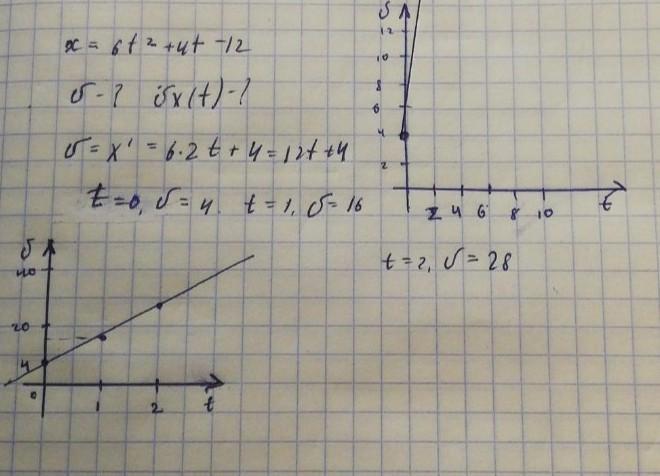 x = 6t² + 4t - 12
υ - ? υx(t) - ?
υ = x' = 6·2t + 4 = 12t + 4
t = 0, υ = 4. t = 1, υ = 16
t = 2, υ = 28
υ
12
10
8
6
4
2
2 4 6 8 10 t
υ
40
20
4
0
1 2 t